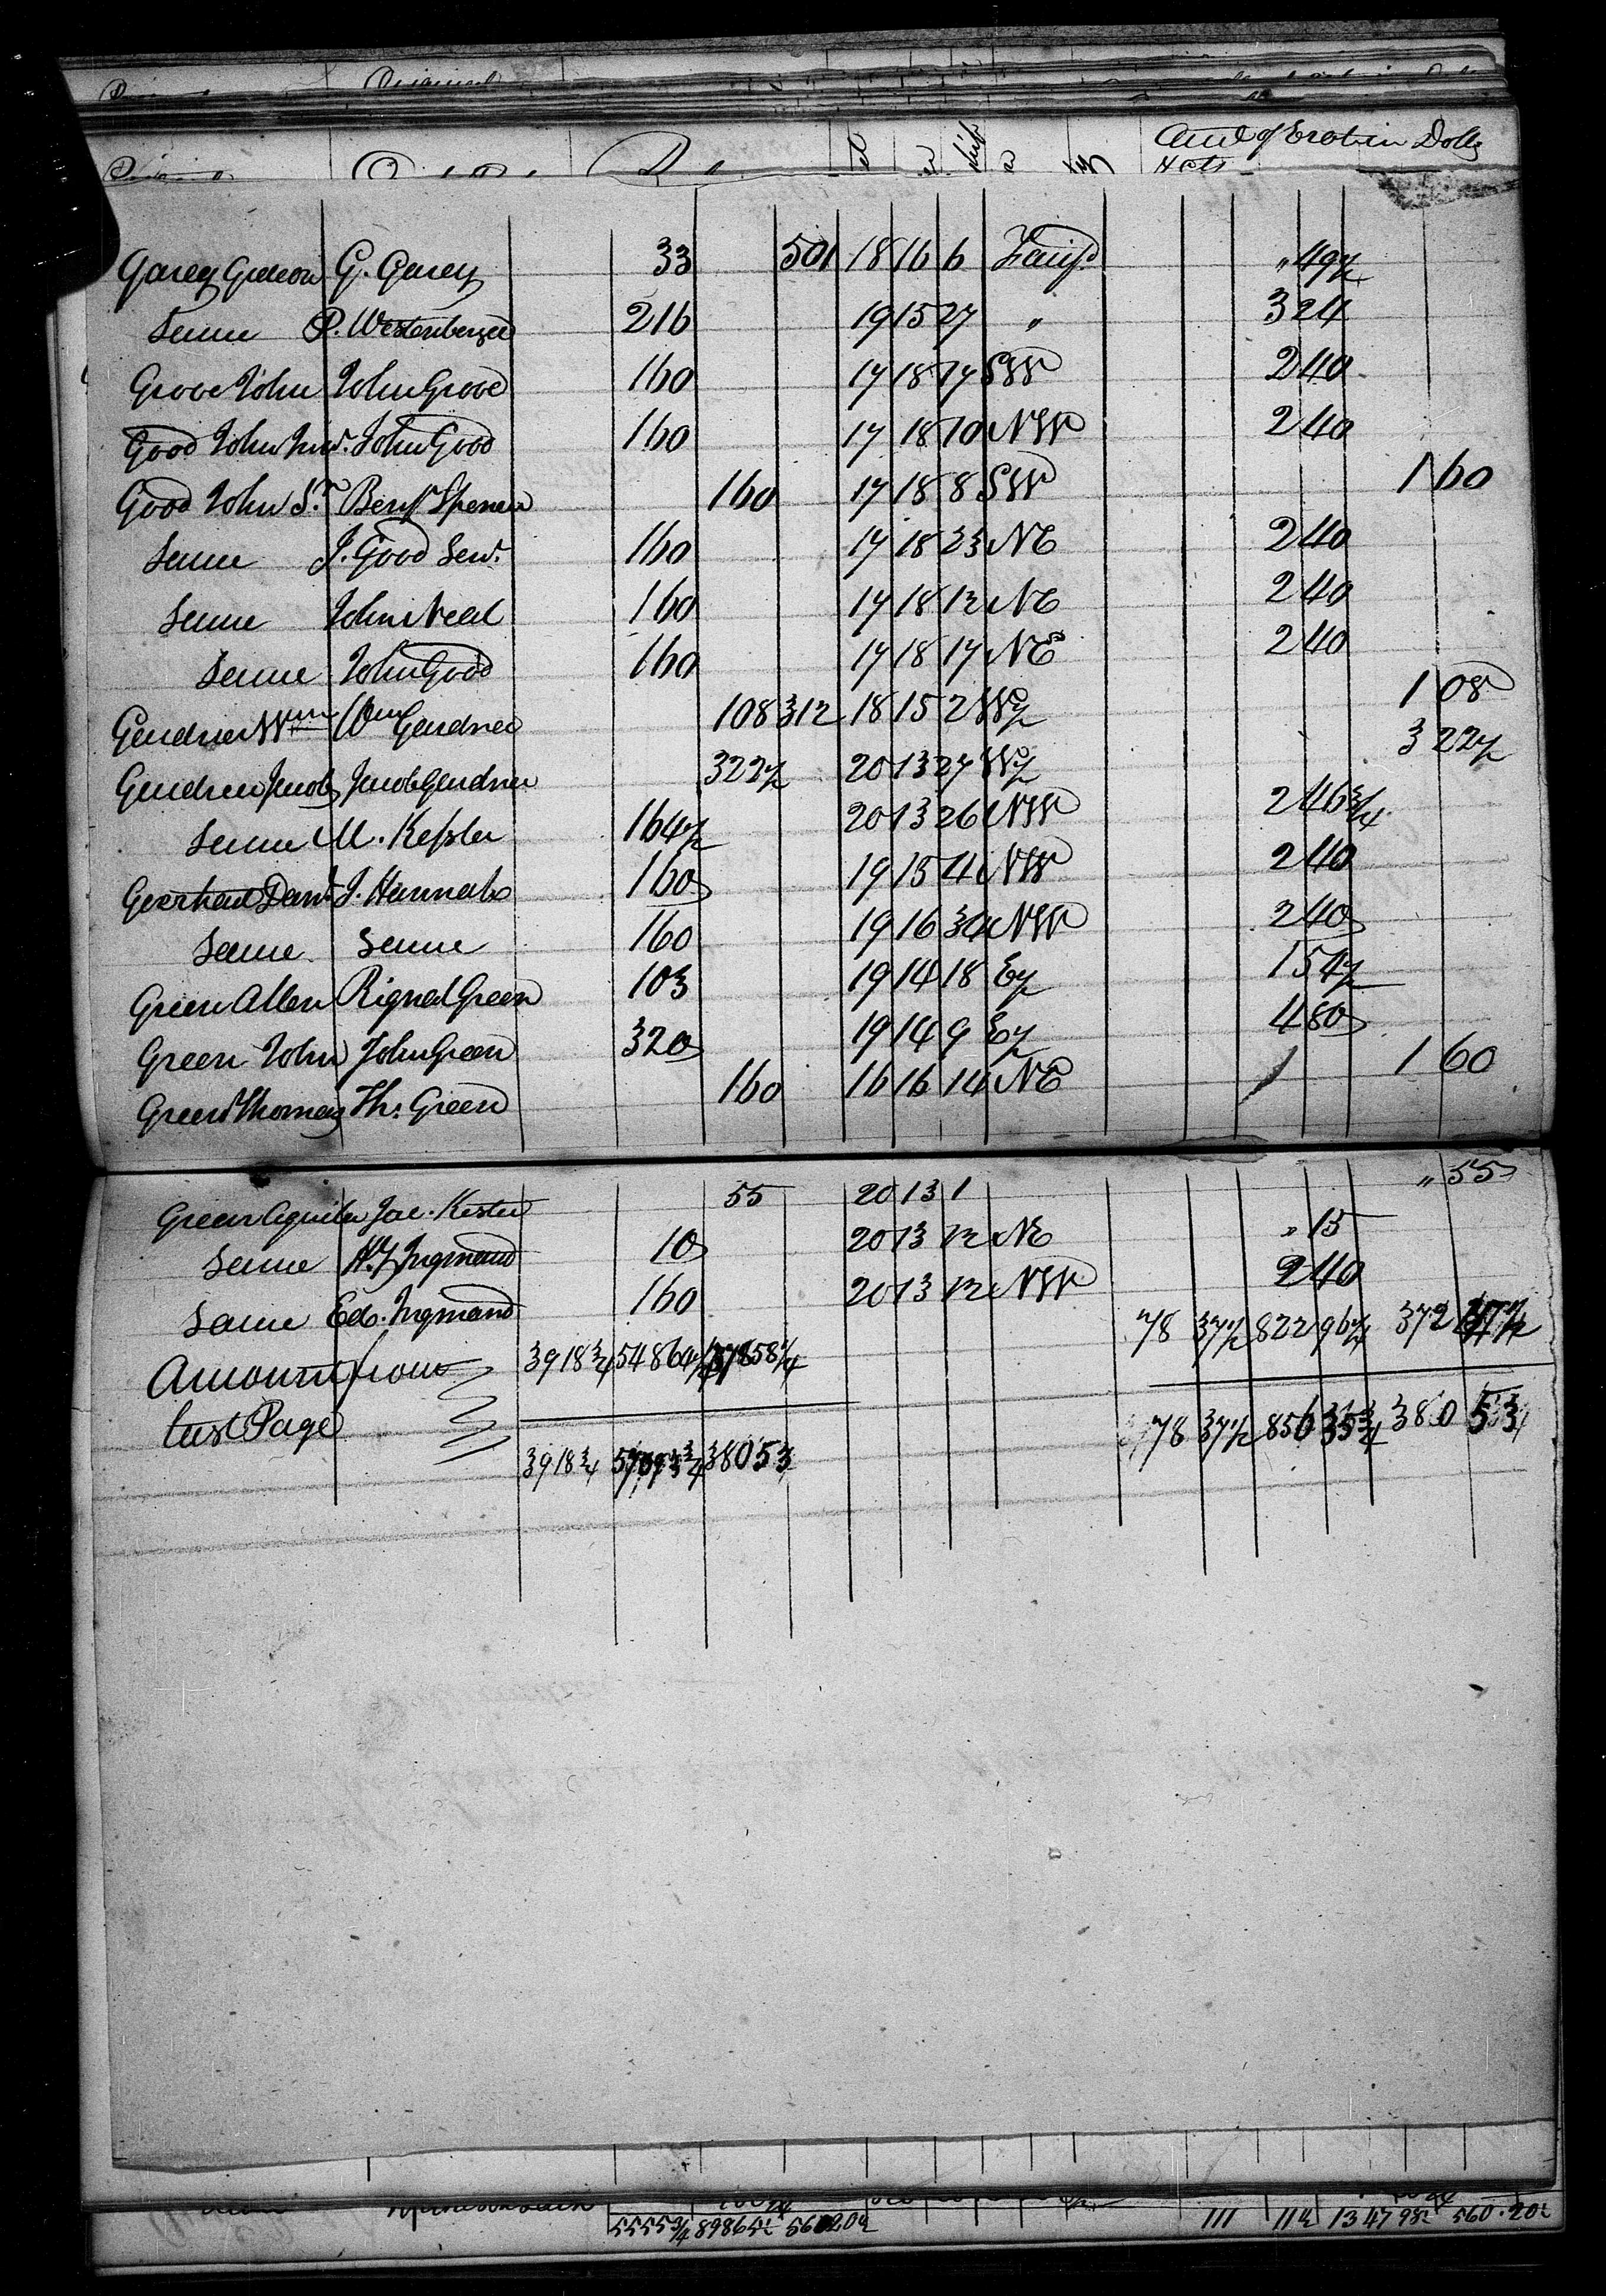 Amt of Tax in Dolls
& cts
Garey Gideon G. Garey 33 501 18 16 6 " 49½
Same P. Westenberger 216 19 15 27 " 3 24
Grove John John Grove 160 17 18 17 SW 2 40
Good John Junr. John Good 160 17 18 10 NW 2 40
Good John Sr. Benj Spencer 160 17 18 8 SW 1 60
Same J. Good Senr. 160 17 18 23 NE 2 40
Same John Neal 160 17 18 12 NE 2 40
Same John Good 160 17 18 17 NE 2 40
Gardner Wm Wm Gardner 108 312 18 15 2 W½ 1 08
Gardner Jacob Jacob Gardner 322½ 20 13 27 W½ 3 22½
Same M. Kessler 164½ 20 13 26 NW 2 46¾
Danl. J. Hannah 160 19 15 4 NW 2 40
Same Same 160 19 16 NW 2 40
Green Allen Rignal Green 103 19 14 18 E½ 1 54½
Green John John Green 320 19 14 9 E½ 4 80
Green Thomas Th. Green 160 16 16 14 NE 1 60
Green Aquila Jac. Kester 55 20 13 1 " 55
Same Ingmand 10 20 13 12 NE " 15
Same Ed. Ingmand 160 20 13 12 NW 2 40
Amount from 3918¾ 54864 78 37½ 822 96 372
last Page
3918¾ 38053 78 37½ 856 35¾ 380 53
5555¾ 89865 111 11 1347 98 560.20